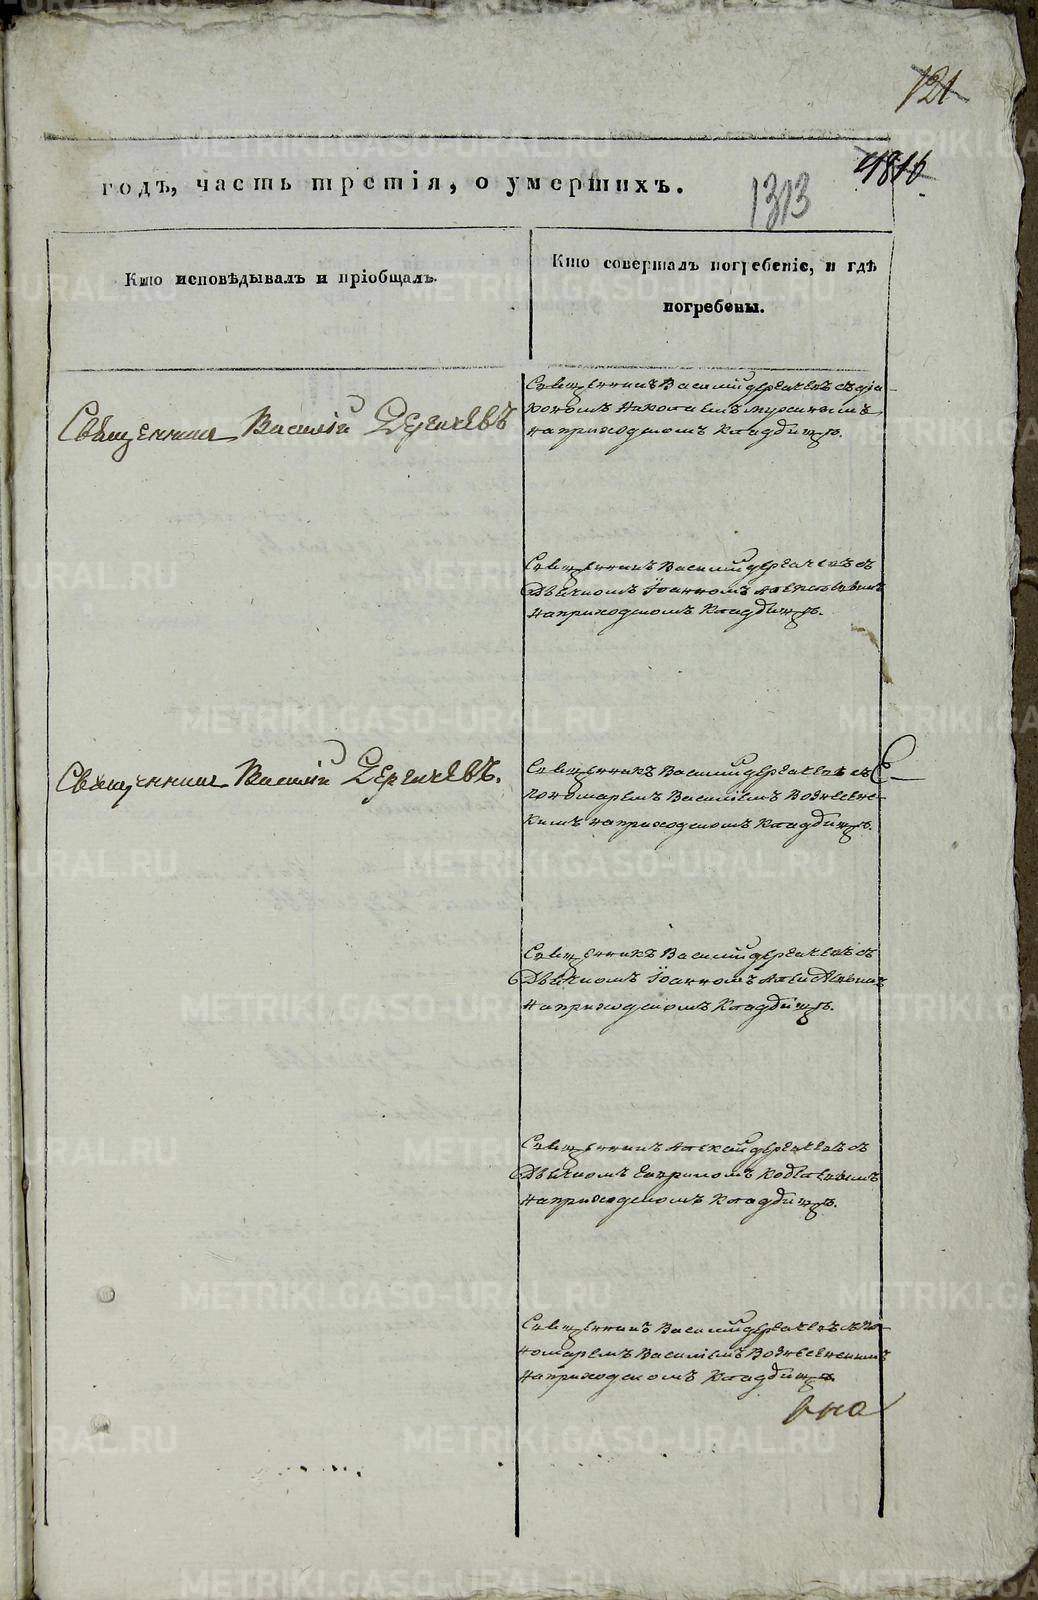 121
1816
годъ, часть третія, о умершихъ.
1313
Кто исповѣдывалъ и пріобщалъ.
Кто совершалъ погребеніе, и гдѣ
погребены.
Священникъ Василій Дергачевъ
Священникъ Василій Дергачевъ съ діа-
кономъ Николаемъ
на приходскомъ Кладбищѣ.
Священникъ Василій Дергачевъ съ
Дьячкомъ Іоанномъ
на приходскомъ Кладбищѣ.
Священникъ Василій Дергачевъ.
Священникъ Василій Дергачевъ съ
пономаремъ Василіемъ Вознесенс-
кимъ на приходскомъ Кладбищѣ.
Священникъ Василій Дергачевъ съ
Дьячкомъ Іоанномъ
на приходскомъ Кладбищѣ.
Священникъ Алексій Дергачевъ съ
Дьячкомъ
на приходскомъ Кладбищѣ.
Священникъ Василій Дергачевъ съ по-
номаремъ Василіемъ Вознесенскимъ
на приходскомъ Кладбищѣ.
METRIKI.GASO-URAL.RU